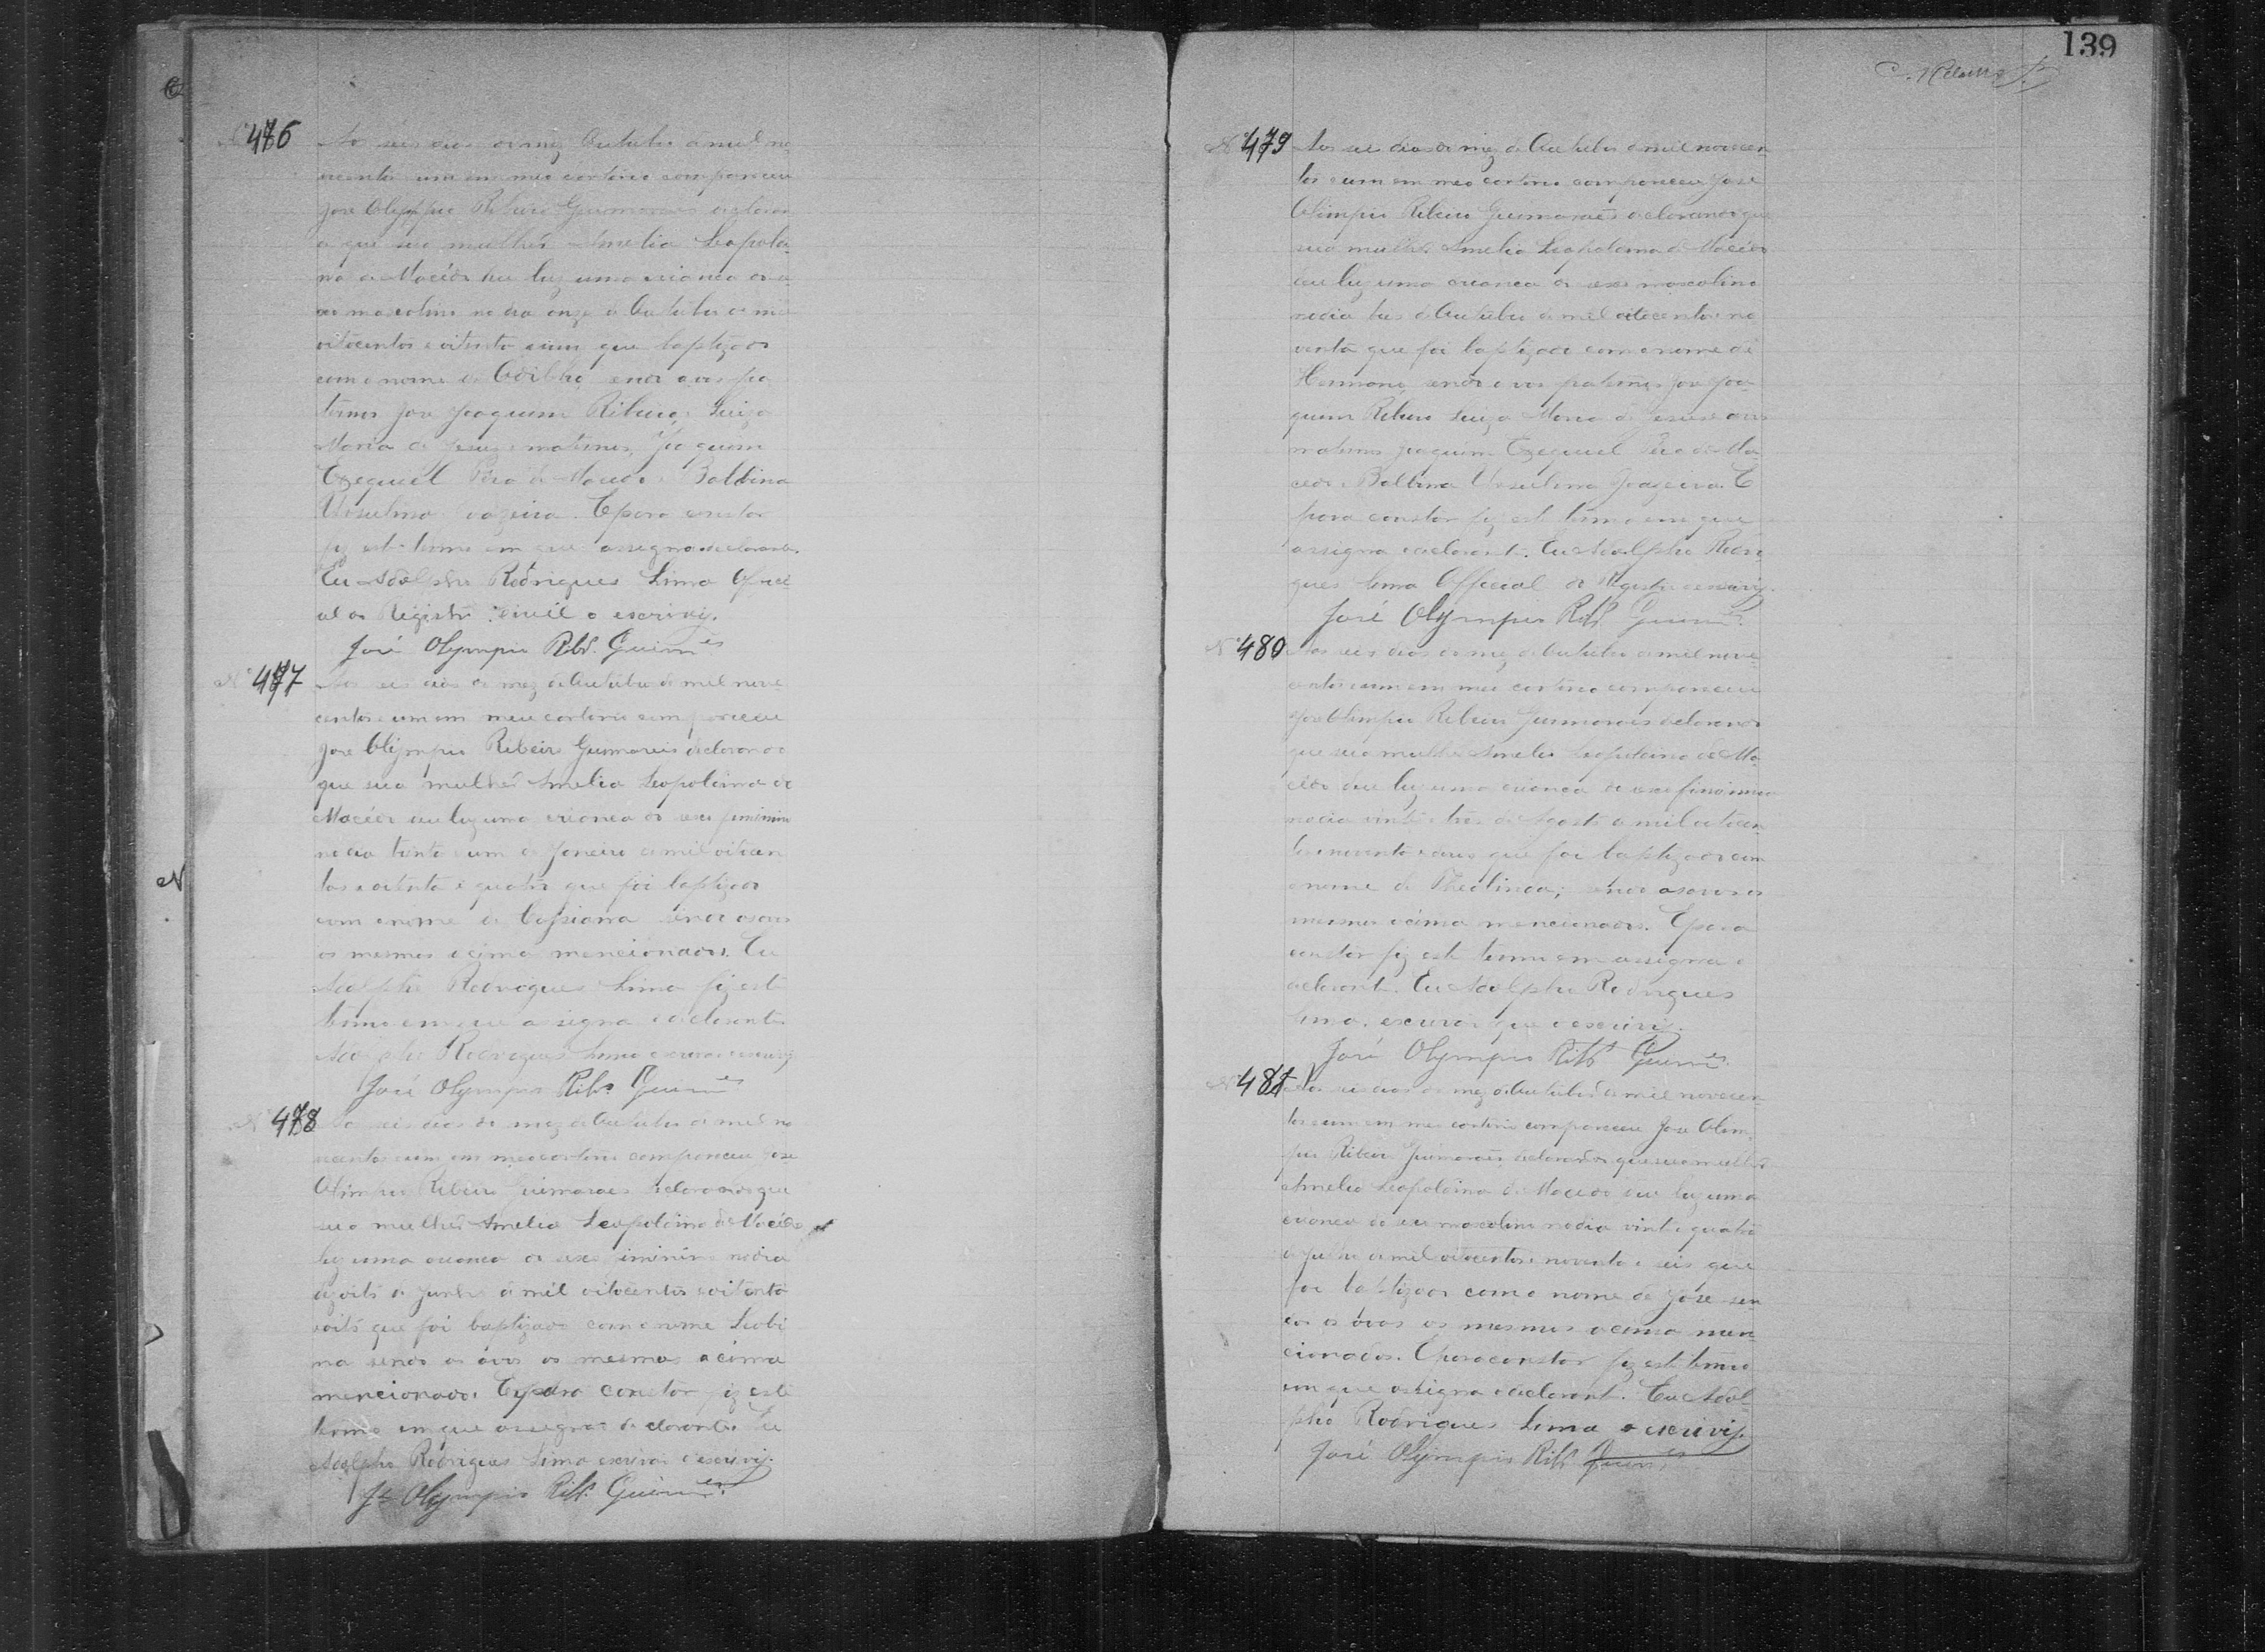 Nº 476
Aos seis dias do mez Outubro de mil no-
vecentos um em meu cartorio compareceu
Jose Olyppio Ribeiro Guimaraes declaran
o que sua mulhér Amelia Leopoldi
na de Macédo deu luz uma crianca do se
xo mascolino no dia onze de Outubro de mil
oitocentos e oitenta e um que baptizado
com o nome de sendo avos pa
ternos Jose Joaquim Ribeiro, Luiza
Maria de Jesuz e maternos, Joaquim
Ezequiel de Macedo e Balbina
Ursulina. E para constar
fiz este termo em que assigna o declarante.
Eu Adolpho Rodrigues Lima Offici
al do Registro Civil o escrivy.
José Olympio Ribr. Guimes
Nº 477
Aos seis dias do mez de Outubro de mil nove
centos e um em meu cartorio compareceu
Jose Olympio Ribeiro Guimaraes declarando
que sua mulhér Amelia Leopoldina de
Macédo deu luz uma crianca do sexo feminino
no dia trinta e um de Janeiro de mil oitocen
tos e oitenta e quatro que foi baptizado
com o nome de sendo os avos
os mesmos acima mencionados. Eu
Adolpho Rodrigues Lima fiz este
termo em que assigna o declarante
Adolpho Rodrigues Lima escrivao o escrivy
José Olympio Ribro Guimes
Nº 478
Aos seis dias do mez de Outubro de mil no
vecentos e um em meu cartorio compareceu Jose
Olimpio Ribeiro Guimaraes declarando que
sua mulhér Amelia Leopoldina de Macédo
luz uma crianca do sexo feminino no dia
dizoito de Junho de mil oitocentos e oitenta
e oito que foi baptizado com o nome Leobi
na sendo os ávos os mesmos acima
mencionados. E para constar fiz este
termo em que assigna o declarante. Eu
Adolpho Rodrigues Lima escrivão o escrivy.
Je Olympio Ribr. Guimes.
139
Nº 479
Aos seis dias do mez de Outubro de mil novecen
tos e um em meu cartorio compareceu Jose
Olimpio Ribeiro Guimaraes declarando que
sua mulhér Amelia Leopoldina de Macédo
deu luz uma crianca do sexo mascolino
no dia tres de Outubro de mil oitocentos no
venta que foi baptizado com o nome de
Hermano, sendo avos paternos Jose Joa
quim Ribeiro Luiza Maria de Jesus e avos
maternos Joaquim Ezequiel de Ma
cedo e Balbina Ursulina. E
para constar fiz este termo em que
assigna o declarante. Eu Adolpho Rodri
gues Lima Official do Registro o escrivy.
José Olympio Ribr Guimes.
Nº 480
Aos seis dias do mez de Outubro de mil nove
centos e um em meu cartorio compareceu
Jose Olimpio Ribeiro Guimaraes declarando
que sua mulhér Amelia Leopoldina de Ma
cédo deu luz uma crianca do sexo
no dia vinte e tres de Agosto de mil oitocen
tos e noventa e dous que foi baptizado com
o nome de Theolinda; sendo os avos os
mesmos acima mencionados. E para
constar fiz este termo em assigna o
declarante. Eu Adolpho Rodrigues
Lima. escrivão que o escrivy.
José Olympio Ribr Guimes.
Nº 481
Aos seis dias do mez de Outubro de mil novecen
tos e um em meu cartorio compareceu Jose Olim
pio Ribeiro Guimaraes, declarando que sua mulhér
Amelia Leopoldina de Macedo deu luz uma
crianca do sexo mascolino no dia vinte e quatro
de Julho de mil oitocentos e noventa e seis que
foi baptizado com o nome de Jose sen
do os ávos os mesmos acima men
cionados. E para constar fiz este termo
em que assigna o declarante. Eu Adol
pho Rodrigues Lima o escrivy.
José Olympio Ribr Guimes